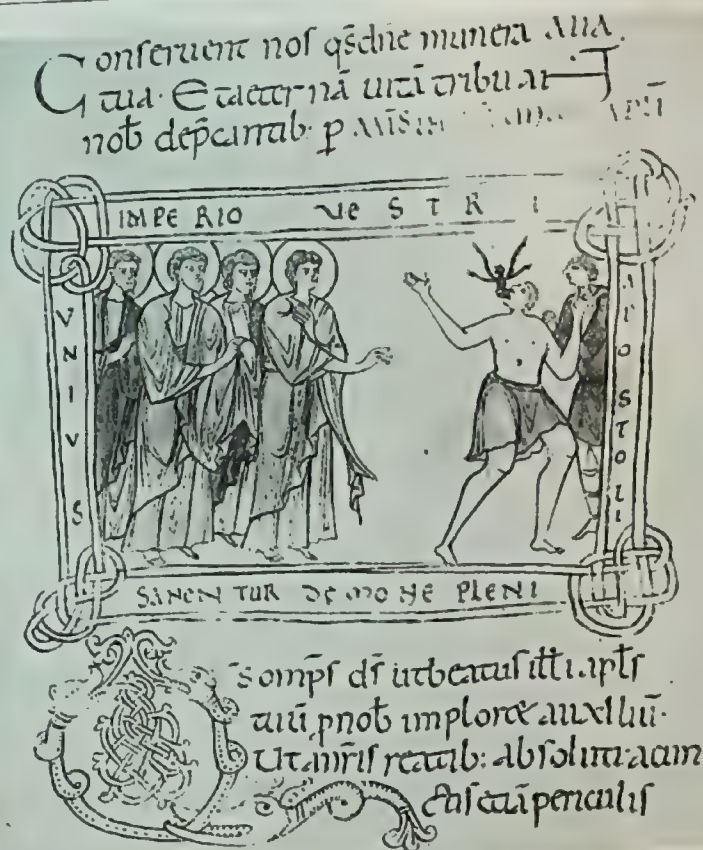 Conseruent nos qs dne munera
tua. Et aeternā uitā tribuant
nob dep̄cantib. p
IMPERIO VESTRI
VNIVS
APOSTOLI
SANENTUR DEMONE PLENI
s omp̄s ds ut beatus ill apls
tuū p nob imploret auxiliū.
Ut a nr̄is reatib: absoluti a cun
ctis etiā periculis